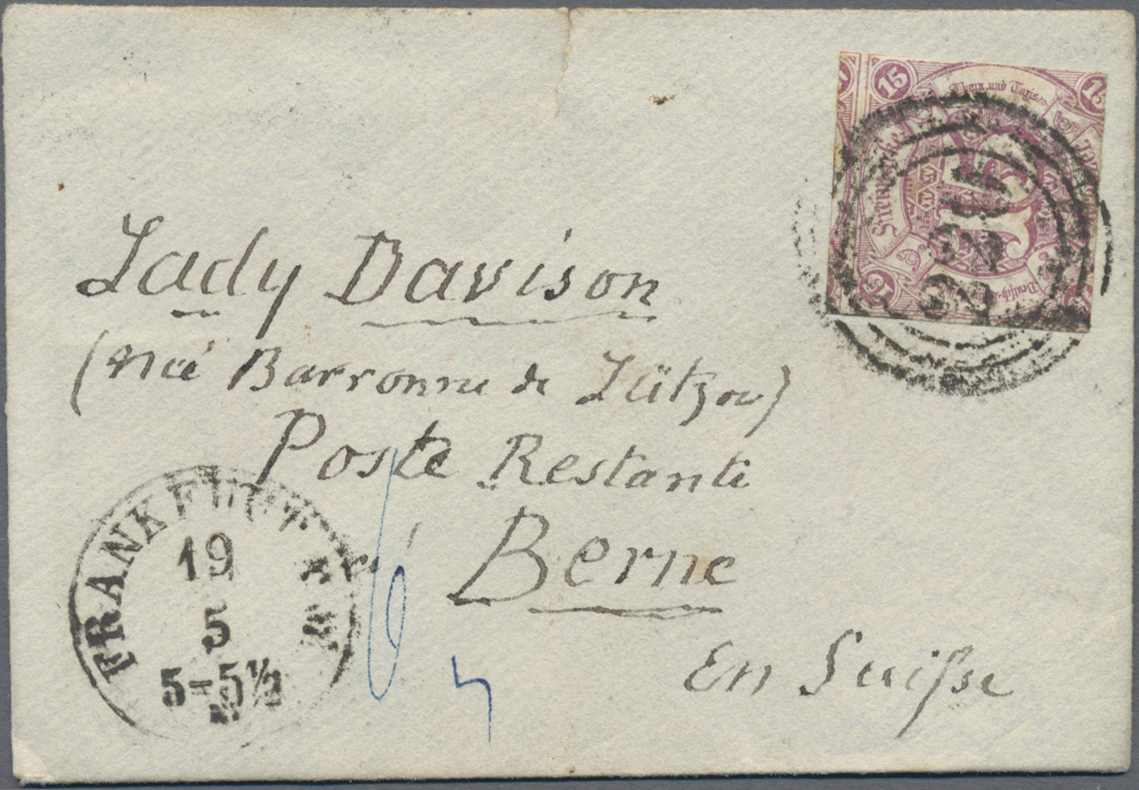 15
15
Thurn und Taxis
15
220
Lady Davison
(née Baronne de Lützow)
Poste Restante
à Berne
En Suisse
FRANKFURT A. M.
19
5
5-5½
6